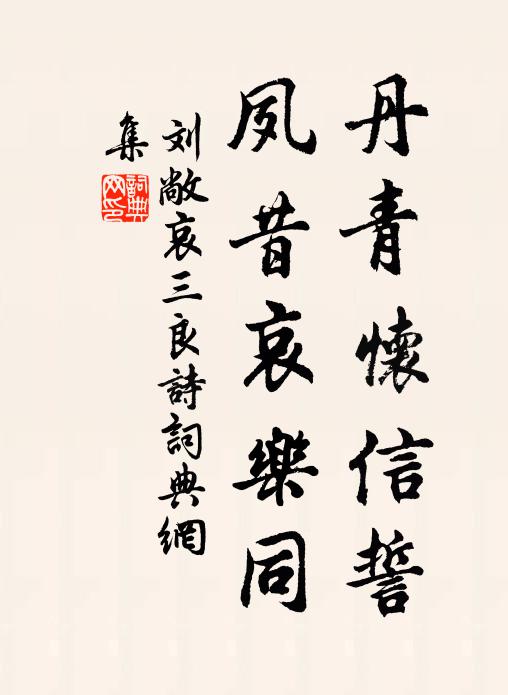 丹青懷信誓
夙昔哀樂同
刘敞哀三良詩詞典網
集
詞典網印